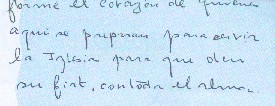 forme el corazón de quienes
aqui se preparan para servir
la Iglesia para que den
su fiat, con toda el alma.